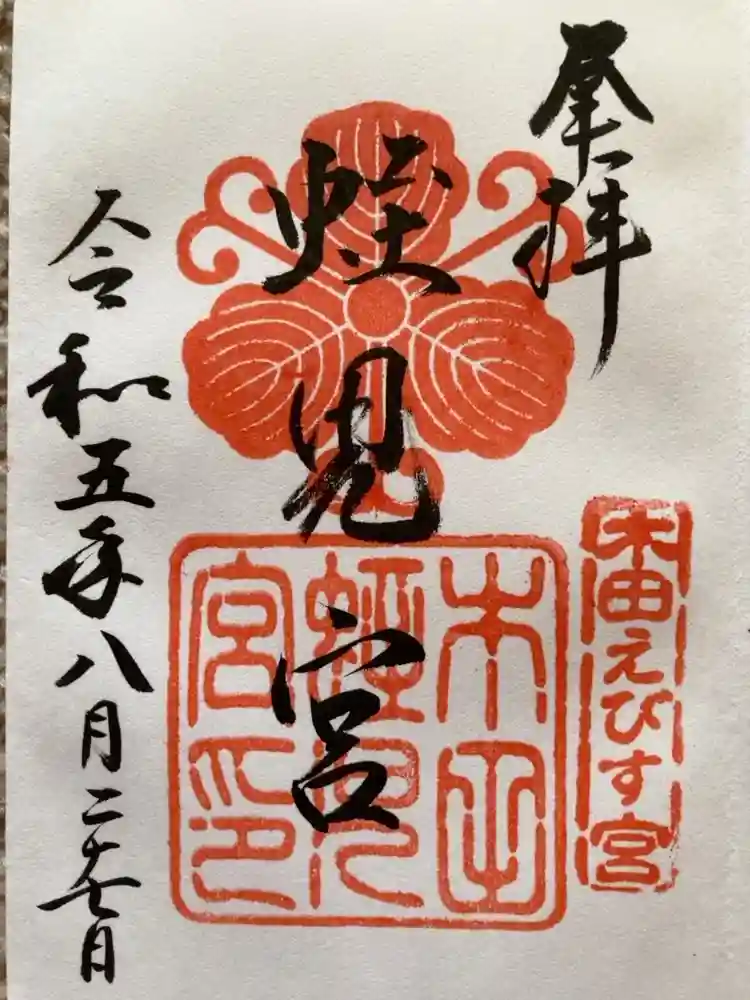 奉拝
蛭児宮
令和五年八月二十七日
えびす宮
蛭児
宮印